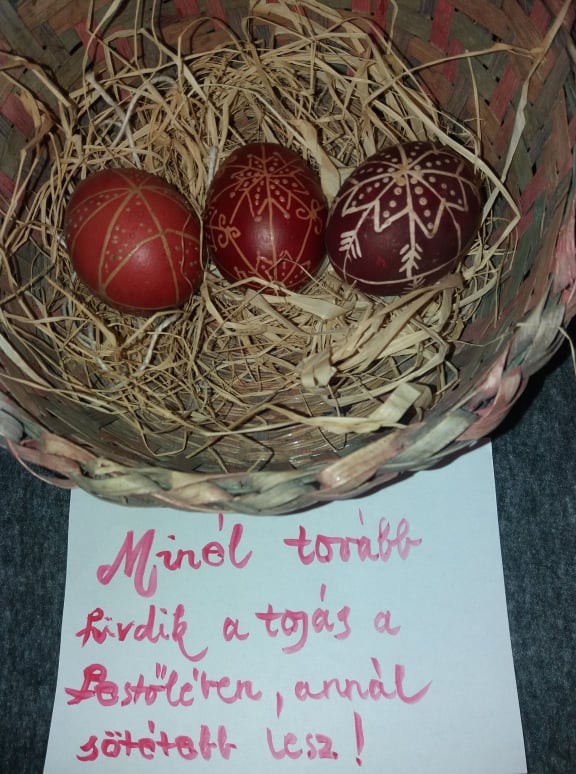 Minél tovább
fürdik a tojás a
festőlében, annál
sötétebb lesz!